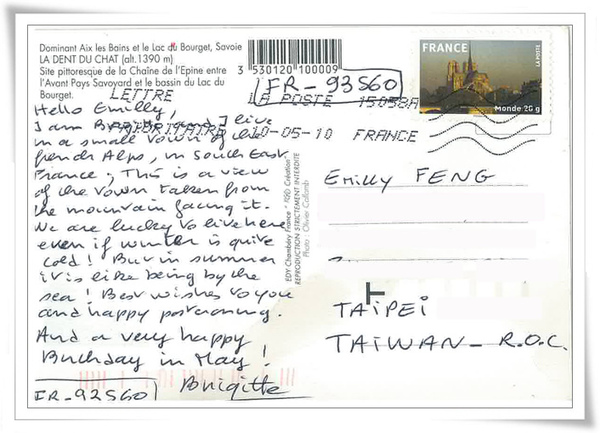 Dominant Aix les Bains et le Lac du Bourget, Savoie
LA DENT DU CHAT (alt.1390 m)
Site pittoresque de la Chaîne de l'Epine entre
l'Avant Pays Savoyard et le bassin du Lac du
Bourget.
3 530120 100009
FR-93560
LETTRE
PRIORITAIRE
LA POSTE 15058A
20-05-10 FRANCE
FRANCE
LA POSTE
Monde 20 g
Hello Emilly,
I am I live
in a small town of the
french Alps, in South East
France; This is a view
of the town taken from
the mountain facing it.
We are lucky to live here
even if winter is quite
cold! But in summer
it is like being by the
sea! Best wishes to you
and happy postcrossing.
And a very happy
Birthday in May!
Brigitte
FR-92560
EDY Chambéry France - Création
REPRODUCTION STRICTEMENT INTERDITE
Photo : Olivier Collomb
Emilly FENG
T
TAIPEI
TAIWAN-R.O.C.